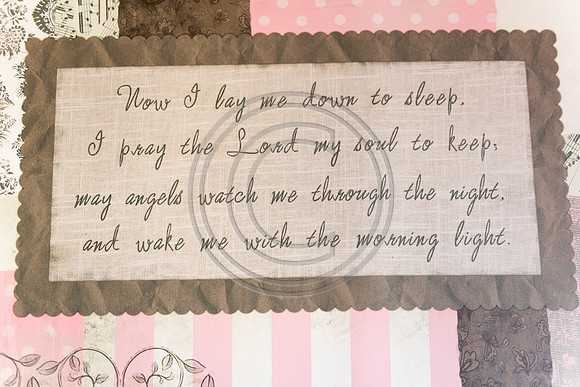 Now I lay me down to sleep,
I pray the Lord my soul to keep;
may angels watch me through the night,
and wake me with the morning light.